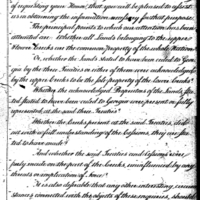 of requesting your Honor, that you will be pleased to assist
us in obtaining the information necessary for that purpose.
The principal points to which our attention has been
attracted are. Whether all Lands belonging to the upper &
lower Creeks are the common property of the whole Nation
Or, whether the Lands stated to have been ceded to Geor-
gia by the three Treaties or either of them were acknowledged
by the upper Creeks to be the sole property of the lower Creeks?
Whether the acknowledged Proprietors of the Lands sta-
ted to have been ceded to Georgia were present or fully
represented at the said three Treaties?
Whether the Creeks present at the said Treaties, did
act with a full understanding of the Cessions, they are sta-
ted to have made?
And whether the said Treaties and Cessions were
freely made on the part of the Creeks, uninfluenced by any
threats or implication of force?
It is also desirable that any other interesting circum-
stances connected with the objects of these enquiries, should